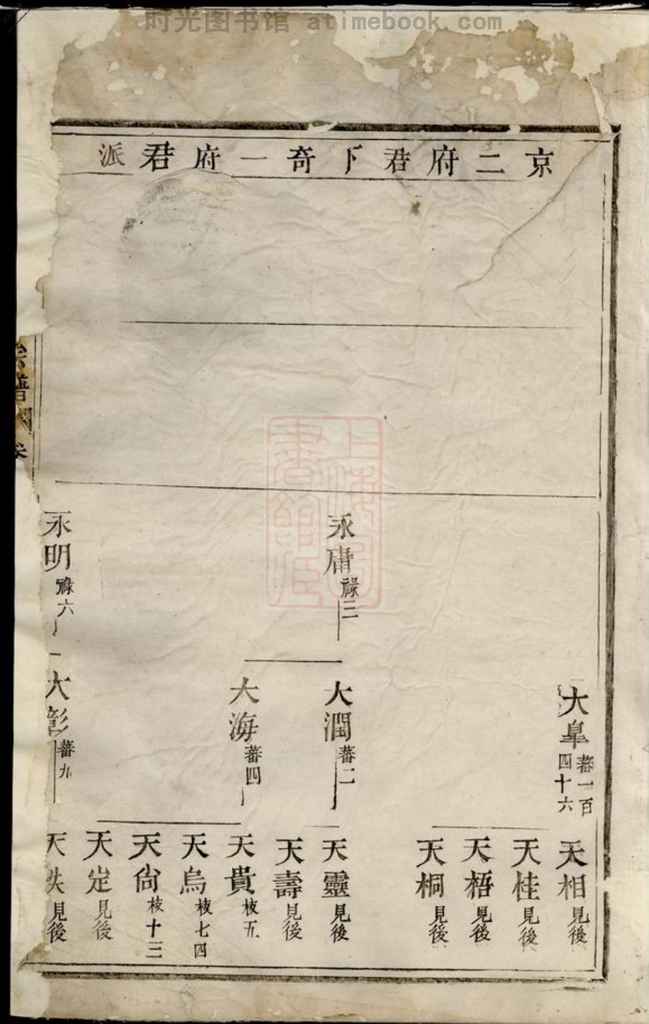 时光图书馆 atimebook.com
京二府君下奇一府君派
大皐 蕃一百四十六
天相 見後
天桂 見後
天梧 見後
天桐 見後
永庸 祿三
大潤 蕃二
天靈 見後
天壽 見後
大海 蕃四
天貴 枝五
天烏 枝七四
天尙 枝十三
天定 見後
永明 祿六
大彰 蕃九
天 見後
宗譜